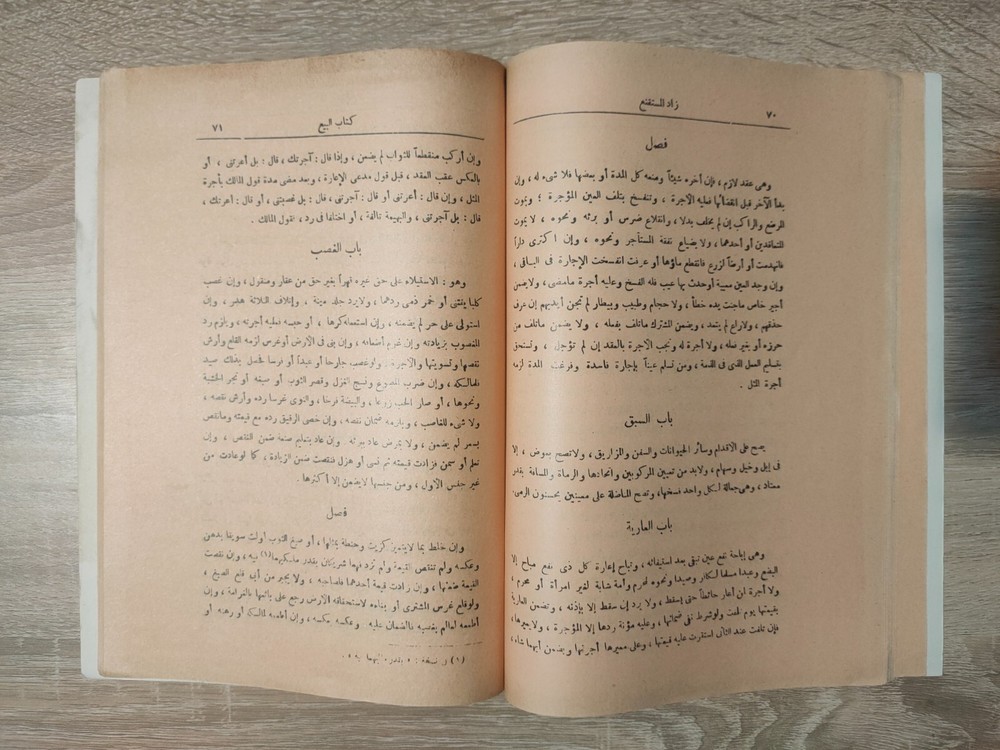 ٧٠
زاد المستقنع
فصل
وهى عقد لازم ، فإن آجره شيئاً ومنعه كل المدة أو بعضها فلا شىء له ، وإن
بدأ الآخر قبل انقضائها فعليه الأجرة ، وتنفسخ بتلف العين المؤجرة ؛ وبموت
الرضع والراكب إن لم يخلف بدلا ، وانقلاع ضرس أو برئه ونحوه ، لا بموت
المتعاقدين أو أحدهما ، ولا بضياع نفقة المستأجر ونحوه ، وإن اكترى داراً
فانهدمت أو أرضاً لزرع فانقطع ماؤها أو غرقت انفسخت الإجارة فى الباقى ،
وإن وجد العين معيبة أو حدث بها عيب فله الفسخ وعليه أجرة مامضى ، ولايضمن
أجير خاص ماجنت يده خطأ ، ولا حجام وطبيب وبيطار لم تجن أيديهم إن عرف
حذقهم ، ولاراع لم يتعد ، ويضمن المشترك ماتلف بفعله ، ولا يضمن ماتلف من
حرزه أو بغير فعله ، ولا أجرة له وتجب الأجرة بالعقد إن لم تؤجل ، وتستحق
بتسليم العمل الذى فى الذمة ، ومن تسلم عيناً بإجارة فاسدة وفرغت المدة لزمه
أجرة المثل .
باب السبق
يصح على الأقدام وسائر الحيوانات والسفن والمزاريق ، ولاتصح بعوض ، إلا
فى إبل وخيل وسهام ، ولابد من تعيين المركوبين واتحادها والرماة والمسافة بقدر
معتاد ، وهى جعالة لكل واحد فسخها ، وتصح المناضلة على معينين يحسنون الرمى.
باب العارية
وهى إباحة نفع عين تبقى بعد استيفائه ، وتباح إعارة كل ذى نفع مباح إلا
البضع وعبدا مسلما لكافر وصيدا ونحوه لمحرم وأمة شابة لغير امرأة أو محرم ،
ولا أجرة لمن أعار حائطاً حتى يسقط ، ولا يرد إن سقط إلا بإذنه ، وتضمن العارية
بقيمتها يوم تلفت ولو شرط نفى ضمانها ، وعليه مؤنة ردها إلا المؤجرة ، ولايعيرها،
فإن تلفت عند الثانى استقرت عليه قيمتها ، وعلى معيرها أجرتها ويضمن أيهما شاء،
كتاب البيع
٧١
وإن أركب منقطعاً للثواب لم يضمن ، وإذا قال : آجرتك ، قال : بل أعرتنى ، أو
بالعكس عقب العقد ، قبل قول مدعى الإعارة ، وبعد مضى مدة قول المالك بأجرة
المثل ، وإن قال : أعرتنى أو قال : آجرتنى ، قال : بل غصبتنى ، أو قال : أعرتك ،
قال : بل آجرتنى ، والبهيمة تالفة ، أو اختلفا فى رد ، فقول المالك .
باب الغصب
وهو : الاستيلاء على حق غيره قهراً بغير حق من عقار ومنقول ، وإن غصب
كلبا يقتنى أو خمر ذمى ردهما ، ولايرد جلد ميتة ، وإتلاف الثلاثة هدر ، وإن
استولى على حر لم يضمنه ، وإن استعمله كرها ، أو حبسه فعليه أجرته ، ويلزم رد
المغصوب بزيادته وإن غرم أضعافه ، وإن بنى فى الأرض أوغرس لزمه القلع وأرش
نقصها وتسويتها والأجرة ، ولو غصب جارحا أو عبداً أو فرسا فحصل بذلك صيد
فلمالكه ، وإن ضرب المصوغ ونسج الغزل وقصر الثوب أو صبغه ونجر الخشبة
ونحوها ، أو صار الحب زرعا ، والبيضة فرخا ، والنوى غرسا رده وأرش نقصه ،
ولا شىء للغاصب ، ويلزمه ضمان نقصه ، وإن خصى الرقيق رده مع قيمته ومانقص
بسعر لم يضمن ، ولابمرض عاد ببرئه . وإن عاد بتعليم صنعة ضمن النقص ، وإن
تعلم أو سمن فزادت قيمته ثم نسى أو هزل فنقصت ضمن الزيادة ، كما لو عادت من
غير جنس الأول ، ومن جنسها لايضمن إلا أكثرها .
فصل
وإن خلط بما لايتميز كزيت وحنطة بمثلها ، أو صبغ الثوب أولت سويقا بدهن
وعكسه ولم تنقص القيمة ولم تزد فهما شريكان بقدر ماليهما(١) فيه ، وإن نقصت
القيمة ضمنها ، وإن زادت قيمة أحدهما فلصاحبه ، ولا يجبر من أبى قلع الصبغ ،
ولو قلع غرس المشترى أو بناءه لاستحقاقه الأرض رجع على بائعها بالغرامة ، وإن
أطعمه لعالم بغصبه فالضمان عليه وعكسه عكسه ، وإن أطعمه لمالكه أو رهنه أو
(١) نسخة :